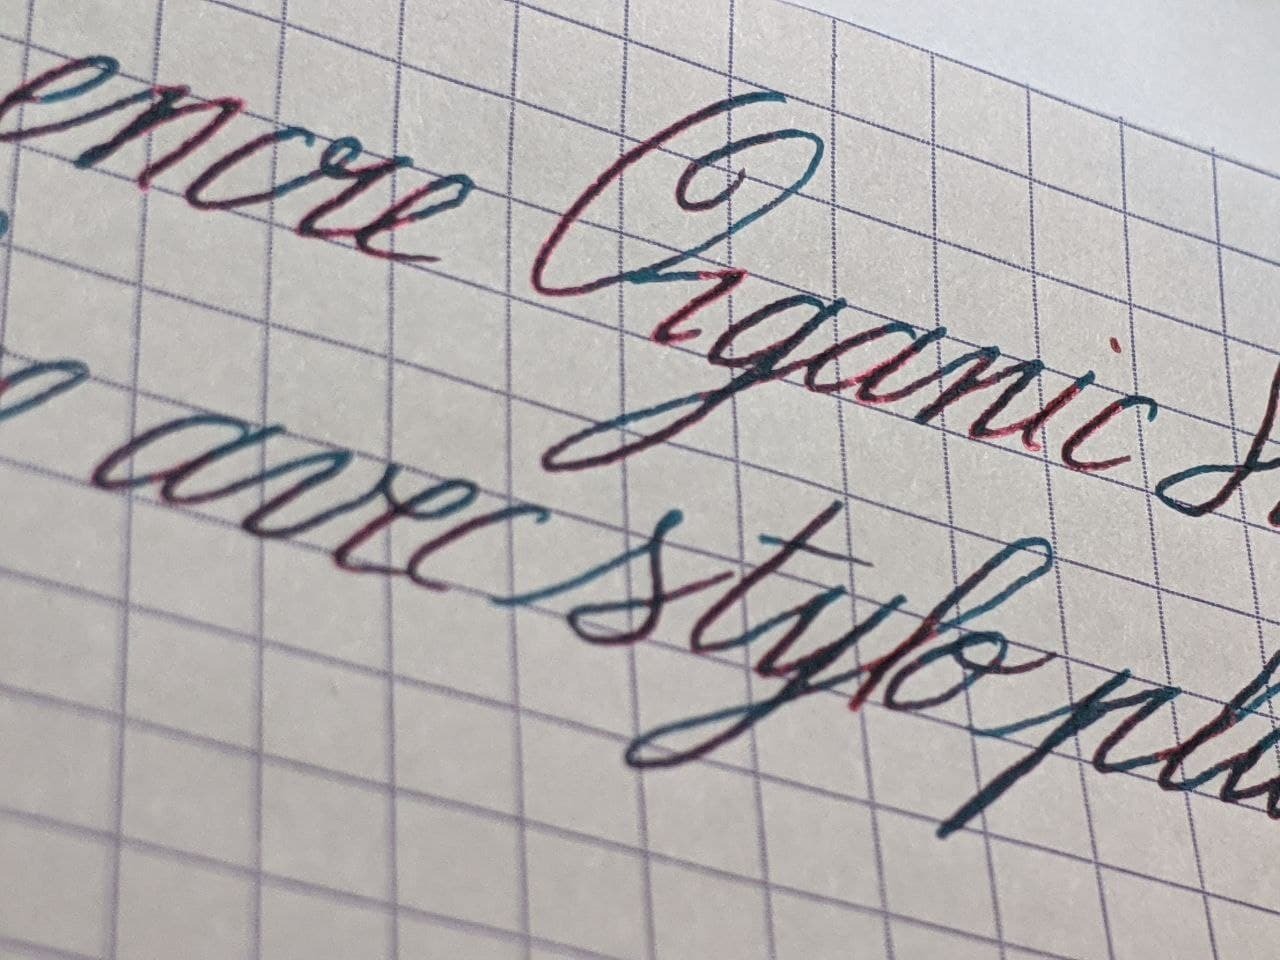 encre Organic
avec stylo